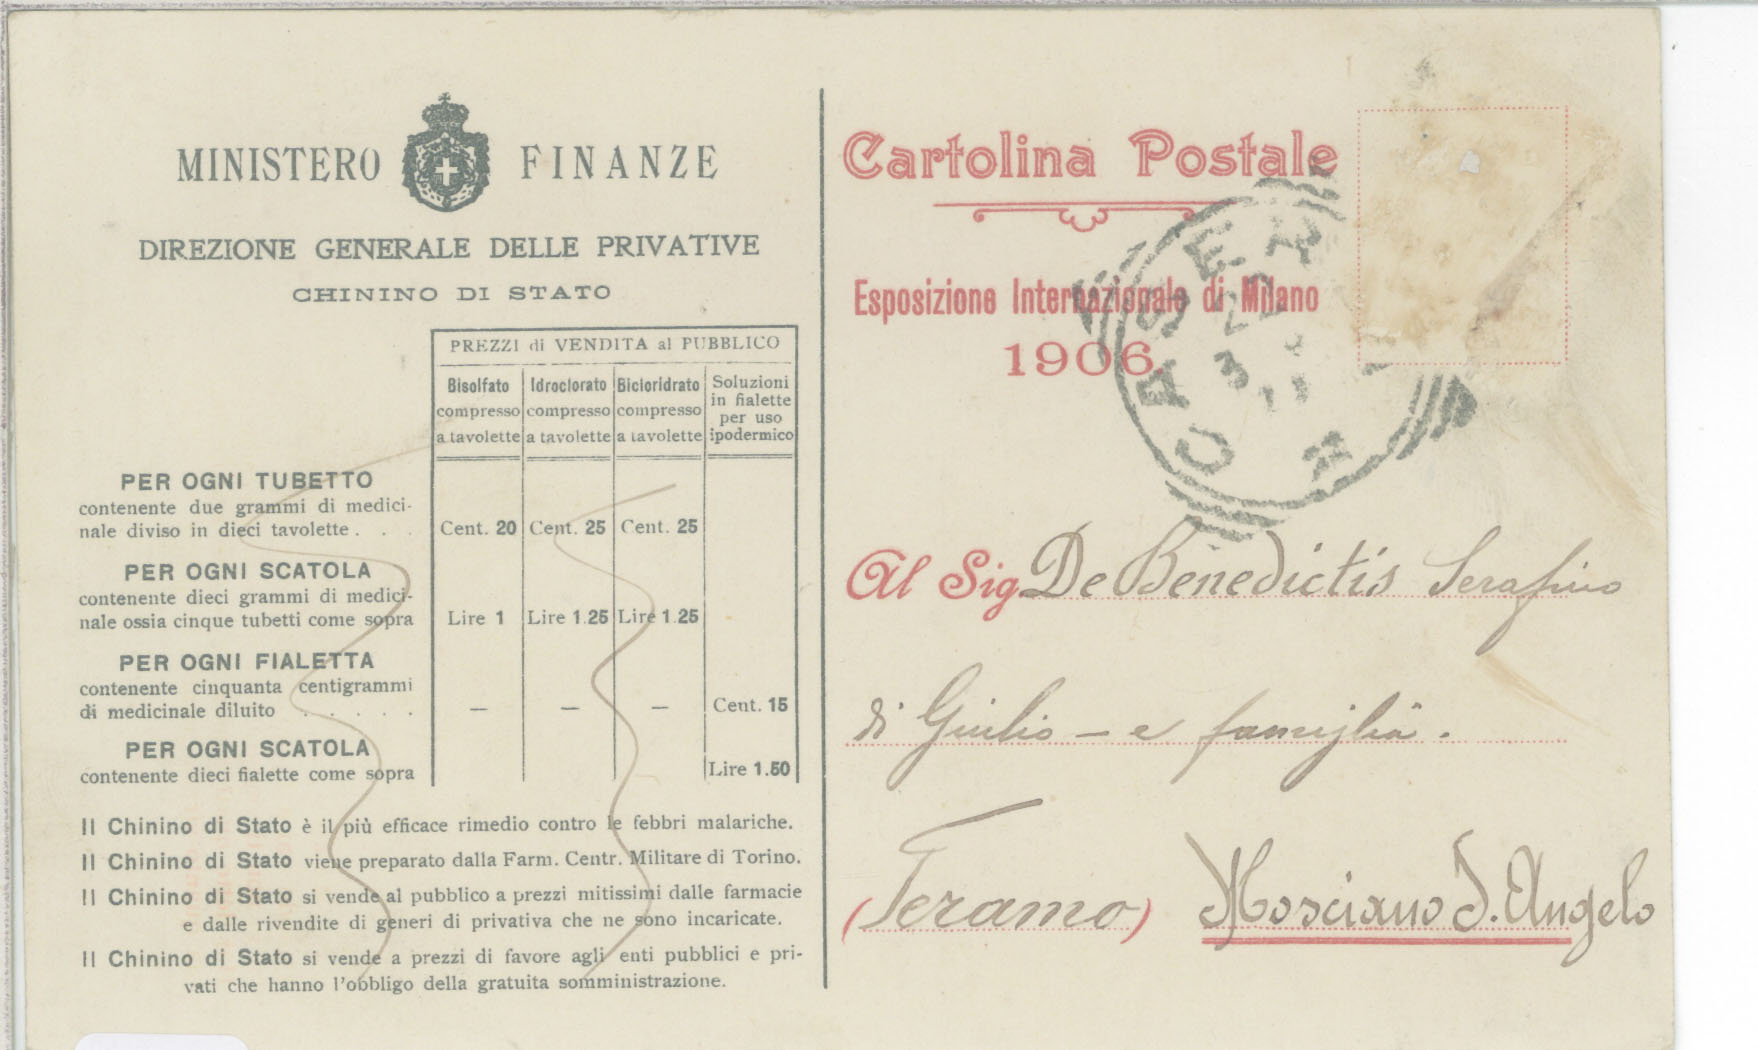 MINISTERO FINANZE
DIREZIONE GENERALE DELLE PRIVATIVE
CHININO DI STATO
PREZZI di VENDITA al PUBBLICO
Bisolfato compresso a tavolette
Idroclorato compresso a tavolette
Bicloridrato compresso a tavolette
Soluzioni in fialette per uso ipodermico
PER OGNI TUBETTO
contenente due grammi di medici-
nale diviso in dieci tavolette . . . Cent. 20 Cent. 25 Cent. 25
PER OGNI SCATOLA
contenente dieci grammi di medici-
nale ossia cinque tubetti come sopra Lire 1 Lire 1.25 Lire 1.25
PER OGNI FIALETTA
contenente cinquanta centigrammi
di medicinale diluito . . . . . — — — Cent. 15
PER OGNI SCATOLA
contenente dieci fialette come sopra Lire 1.50
Il Chinino di Stato è il più efficace rimedio contro le febbri malariche.
Il Chinino di Stato viene preparato dalla Farm. Centr. Militare di Torino.
Il Chinino di Stato si vende al pubblico a prezzi mitissimi dalle farmacie
e dalle rivendite di generi di privativa che ne sono incaricate.
Il Chinino di Stato si vende a prezzi di favore agli enti pubblici e pri-
vati che hanno l'obbligo della gratuita somministrazione.
Cartolina Postale
Esposizione Internazionale di Milano
1906.
CASER
Al Sig. De Benedictis Serafino
di Giulio — e famiglia.
(Teramo) Mosciano S. Angelo